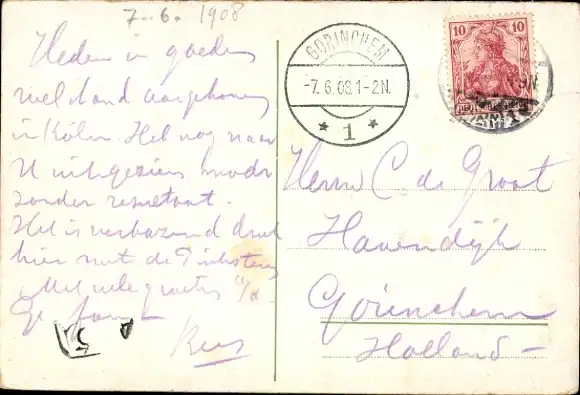 7.6.1908
Heden in goeden
welstand aangekomen
in Köln. Heb nog naar
U uitgezien maar
zonder resultaat.
Het is verbazend druk
hier met de
Met vele groeten
Kees
GORINCHEM
-7.6.08.1-2N.
1
10 10
Herrn C de Groot
Havendijk
Gorinchem
Holland-